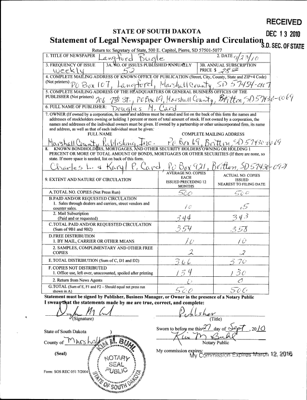 RECEIVED
DEC 13 2010
S.D. SEC. OF STATE
STATE OF SOUTH DAKOTA
Statement of Legal Newspaper Ownership and Circulation
Return to: Secretary of State, 500 E. Capitol, Pierre, SD 57501-5077
1. TITLE OF NEWSPAPER
Langford Bugle
2. DATE
3. FREQUENCY OF ISSUE
weekly
3A. NO. OF ISSUES PUBLISHED ANNUALLY
52
3B. ANNUAL SUBSCRIPTION
PRICE $
4. COMPLETE MAILING ADDRESS OF KNOWN OFFICE OF PUBLICATION (Street, City, County, State and ZIP+4 Code)
(Not printers)
Po Box 107, Langford, Marshall County, SD 57454
5. COMPLETE MAILING ADDRESS OF THE HEADQUARTERS OF GENERAL BUSINESS OFFICES OF THE
PUBLISHER (Not printers)
PO Box 69, Marshall County, Britton SD 57430-0069
6. FULL NAME OF PUBLISHER:
Douglas M. Card
7. OWNER (If owned by a corporation, its name and address must be stated and list on the back of this form the names and
addresses of stockholders owning or holding 1 percent or more of total amount of stock. If not owned by a corporation, the
names and address of the individual owners must be given. If owned by a partnership or other unincorporated firm, its name
and address, as well as that of each individual must be given)
FULL NAME
COMPLETE MAILING ADDRESS
Marshall County Publishing, Inc.
Po Box 69, Britton SD 57430-0069
8. KNOWN BONDHOLDERS, MORTGAGES, AND OTHER SECURITY HOLDERS OWNING OR HOLDING 1
PERCENT OR MORE OF TOTAL AMOUNT OF BONDS, MORTGAGES OR OTHER SECURITIES (If there are none, so
state. If more space is needed, list on back of this form.
Po Box 421, Britton, SD 57430
9. EXTENT AND NATURE OF CIRCULATION
AVERAGE NO. COPIES
EACH
ISSUE DURING
PRECEDING 12
MONTHS
ACTUAL NO. COPIES
ISSUED
NEAREST TO FILING DATE
A. TOTAL NO. COPIES (Net Press Run)
500
500
B. PAID AND/OR REQUESTED CIRCULATION
1. Sales through dealers and carriers, street vendors and
counter sales.
10
15
2. Mail Subscriptions
(Paid and or requested)
344
343
C. TOTAL PAID AND/OR REQUESTED CIRCULATION
(Sum of 9B1 and 9B2)
354
358
D. FREE DISTRIBUTION
1. BY MAIL, CARRIER OR OTHER MEANS
10
10
2. SAMPLES, COMPLIMENTARY AND OTHER FREE
COPIES
2
2
E. TOTAL DISTRIBUTION (Sum of C, D1 and D2)
366
370
F. COPIES NOT DISTRIBUTED
1. Office use, left over, unaccounted, spoiled after printing
134
130
2. Return from News Agents
0
0
G. TOTAL (Sum of E, F1 and F2 - Should equal net press run
shown in A)
500
500
Statement must be signed by Publisher, Business Manager, or Owner in the presence of a Notary Public
I swear that the statements made by me are true, correct, and complete:
(Signature)
Publisher
(Title)
State of South Dakota
County of Marshall
(Seal)
KIM M. BUHL
NOTARY
SEAL
PUBLIC
STATE OF SOUTH DAKOTA
Sworn to before me this 27 day of Sept., 2010
Kim M Buhl
Notary Public
My commission expires:
My Commission Expires March 12, 2016